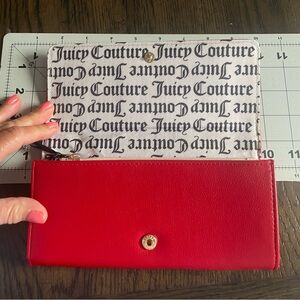 Juicy Couture Juicy Couture
Juicy Couture Juicy Couture
Juicy Couture Juicy Couture
Juicy Couture Juicy Couture
Juicy Couture Juicy Couture
Juicy Couture Juicy Couture
1
11